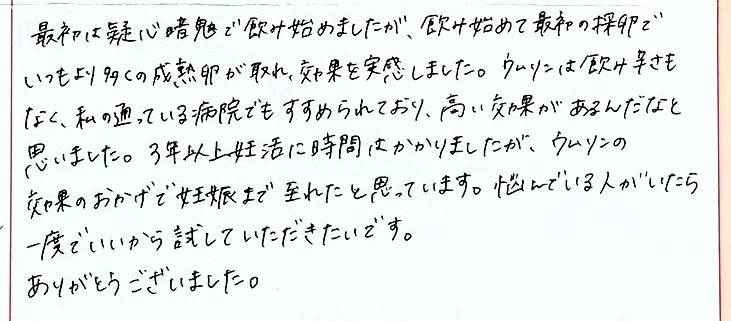 最初は疑心暗鬼で飲み始めましたが、飲み始めて最初の採卵で
いつもより多くの成熟卵が取れ、効果を実感しました。ウムリンは飲み辛さも
なく、私の通っている病院でもすすめられており、高い効果があるんだなと
思いました。3年以上妊活に時間はかかりましたが、ウムリンの
効果のおかげで妊娠まで至れたと思っています。悩んでいる人がいたら
一度でいいから試していただきたいです。
ありがとうございました。